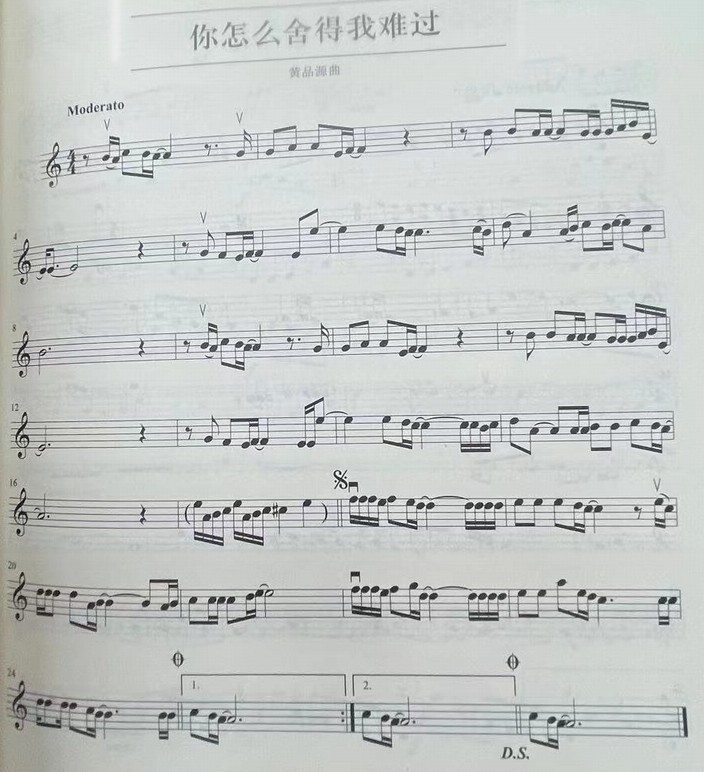 你怎么舍得我难过
黄品源曲
Moderato
4
4
4
8
12
16
20
24
1.
2.
D.S.